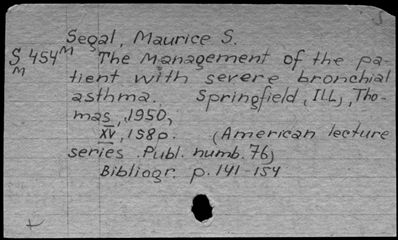 Segal, Maurice S.
S 454 M The Management of the pa-
M tient with severe bronchial
asthma. Springfield, Ill., Tho-
mas, 1950,
XV, 158p. (American lecture
series. Publ. numb. 76)
Bibliogr. p. 141-154